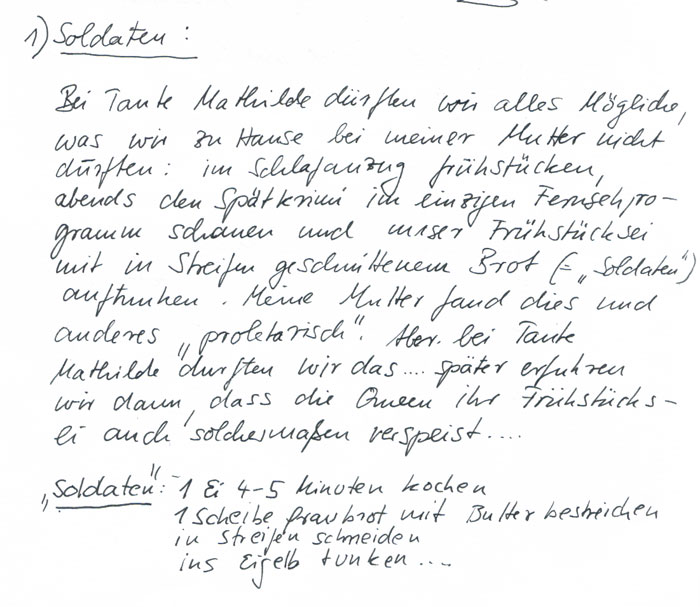 1) Soldaten :
Bei Tante Mathilde dürften wir alles Mögliche,
was wir zu Hause bei meiner Mutter nicht
durften: im Schlafanzug frühstücken,
abends den Spätkrimi im einzigen Fernsehpro-
gramm schauen und unser Frühstücksei
mit in Streifen geschnittenem Brot (= „Soldaten")
auftunken. Meine Mutter fand dies und
anderes „proletarisch". Aber bei Tante
Mathilde durften wir das.... später erfuhren
wir dann, dass die Queen ihr Frühstücks-
ei auch solchermaßen verspeist....
„Soldaten": - 1 Ei 4-5 Minuten kochen
1 Scheibe Graubrot mit Butter bestreichen
in Streifen schneiden
ins Eigelb tunken ....